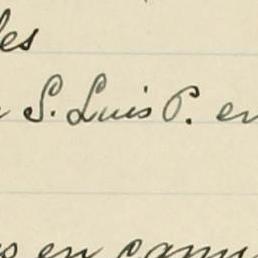 les
S. Luis P. en
s en camp